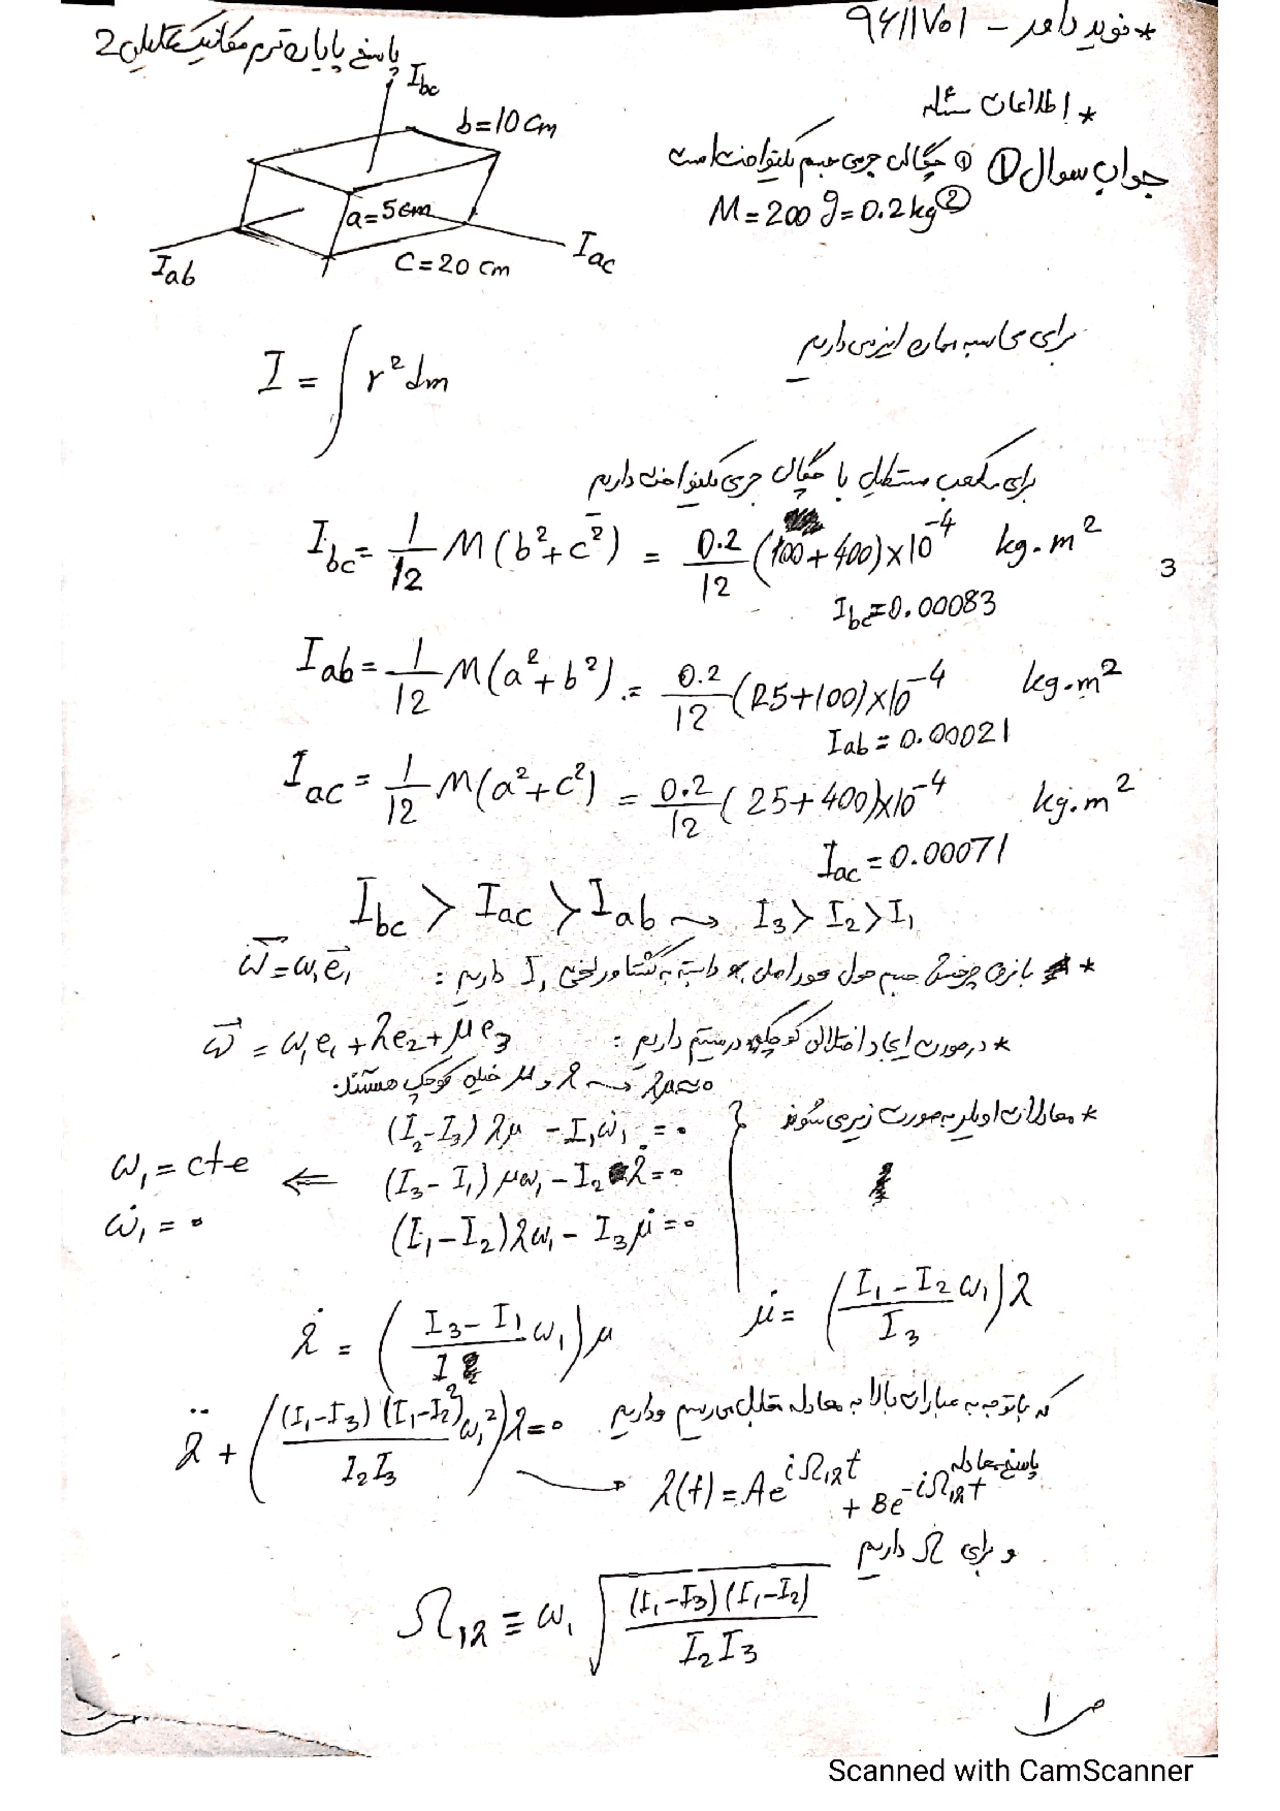 * نوید داور - 9611701
پاسخ پایان ترم مکانیک تحلیلی 2
* اطلاعات مسئله
جواب سوال ① ① چگالی جرمی جسم یکنواخت است
M = 200 g = 0.2 kg ②
I_bc
b = 10 cm
a = 5 cm
c = 20 cm
I_ab
I_ac
برای محاسبه ممان اینرسی داریم
I = ∫ r² dm
برای مکعب مستطیل با چگالی جرمی یکنواخت داریم
I_bc = 1/12 M (b² + c²) = 0.2/12 (100 + 400) × 10⁻⁴ kg.m²
3
I_bc = 0.00083
I_ab = 1/12 M (a² + b²) = 0.2/12 (25 + 100) × 10⁻⁴ kg.m²
I_ab = 0.00021
I_ac = 1/12 M (a² + c²) = 0.2/12 (25 + 400) × 10⁻⁴ kg.m²
I_ac = 0.00071
I_bc > I_ac > I_ab ⇝ I₃ > I₂ > I₁
* چرخش جسم حول محور اصلی وابسته به گشتاور لختی I₁ داریم : ω⃗ = ω₁e⃗₁
* درصورت ایجاد اختلالی کوچک در سیستم داریم : ω⃗ = ω₁e₁ + λe₂ + μe₃
λμ ≈ 0 ⇝ λ و μ خیلی کوچک هستند
* معادلات اویلر به صورت زیر می شوند
(I₂ - I₃) λμ - I₁ω̇₁ = 0
(I₃ - I₁) μω₁ - I₂λ̇ = 0
(I₁ - I₂) λω₁ - I₃μ̇ = 0
⇐ ω₁ = cte
ω̇₁ = 0
λ̇ = ((I₃ - I₁)/I₂ ω₁) μ μ̇ = ((I₁ - I₂)/I₃ ω₁) λ
که با توجه به عبارات بالا به معادله مقابل می رسیم و داریم
λ̈ + ((I₁ - I₃)(I₁ - I₂)/(I₂I₃) ω₁²) λ = 0
پاسخ معادله
λ(t) = Ae^{iΩ₁λt} + Be^{-iΩ₁λt}
و برای Ω داریم
Ω₁λ ≡ ω₁ √((I₁ - I₃)(I₁ - I₂)/(I₂I₃))
ص ۱
Scanned with CamScanner